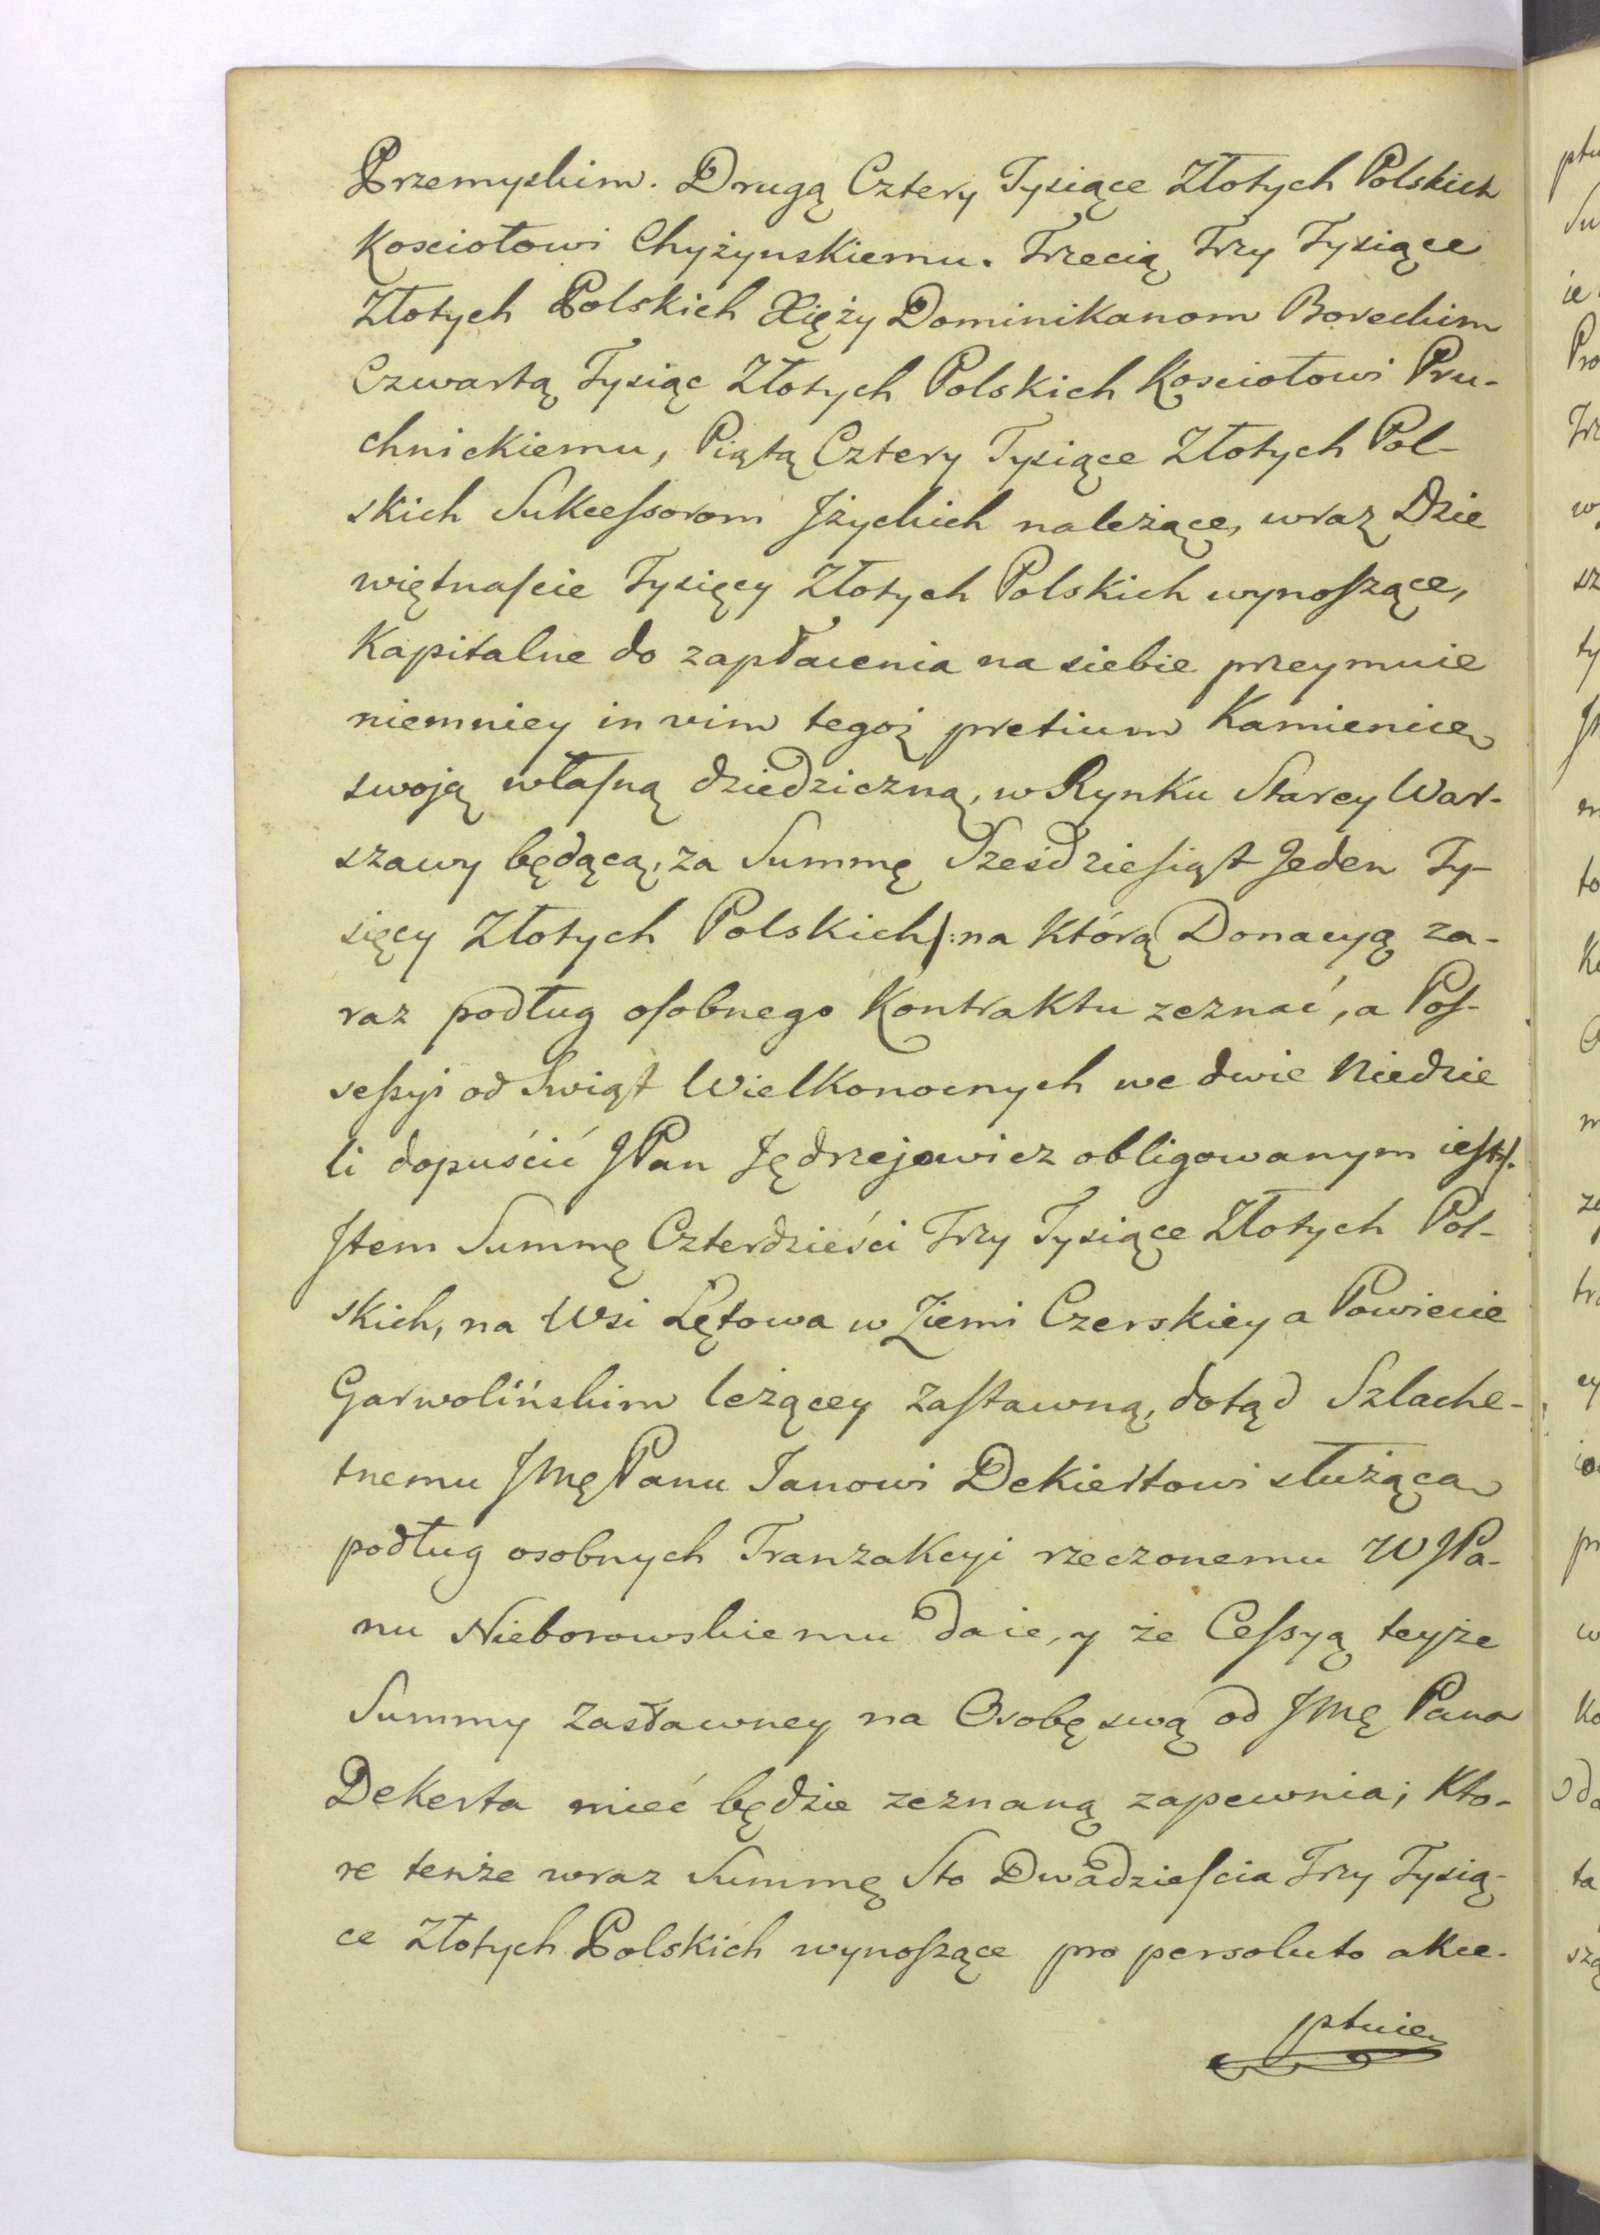 Przemyskim. Drugą Cztery Tysiące Złotych Polskich
Kosciołowi Chyżynskiemu. Trzecią Trzy Tysiące
Złotych Polskich Xięży Dominikanom Boreckim
Czwartą Tysiąc Złotych Polskich Kosciołowi Pru-
chnickiemu, Piątą Cztery Tysiące Złotych Pol-
skich Sukceſsorom Jżyckich należące, wraz Dzie
więtnaſcie Tysięcy Złotych Polskich wynoſzące,
Kapitalne do zapłacenia na siebie przeymuie
niemniey in vim tegoż pretium Kamienicę
swoją własną dziedziczną, w Rynku Starey War-
szawy będącą, za Summę Sześdziesiąt Jeden Ty-
sięcy Złotych Polskich /: na którą Donacyą za-
raz podług oſobnego Kontraktu zeznać, a Poſ-
seſsyi od Swiąt Wielkonocnych we dwie Niedzie
li dopuścić JPan Jędrzejowicz obligowanym ieſt :/.
Jtem Summę Czterdzieści Trzy Tysiące Złotych Pol-
skich, na Wsi Lętowa w Ziemi Czerskiey a Powiecie
Garwolińskim leżącey Zaſtawną, dotąd Szlache-
tnemu JMę Panu Janowi Dekiertowi służąca
podług osobnych Tranzakcyi rzeczonemu WJPa-
nu Nieborowskiemu daie, y że Ceſsyą teyże
Summy Zastawney na Osobę swą od JMę Pana
Dekerta mieć będzie zeznaną zapewnia; Kto-
re tenże wraz Summę Sto Dwadzieſcia Trzy Tysią-
ce Złotych Polskich wynoſzące pro persoluto akce-
ptuie